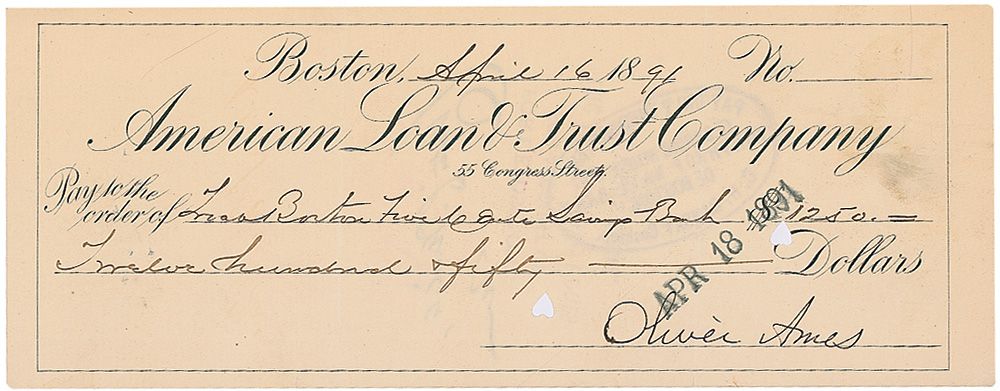 Boston, April 16 1891 No.
American Loan & Trust Company
55 Congress Street,
Pay to the order of Boston Five Cents Savings Bank $1250.=
Twelve hundred & fifty Dollars
APR 18 1891
Oliver Ames